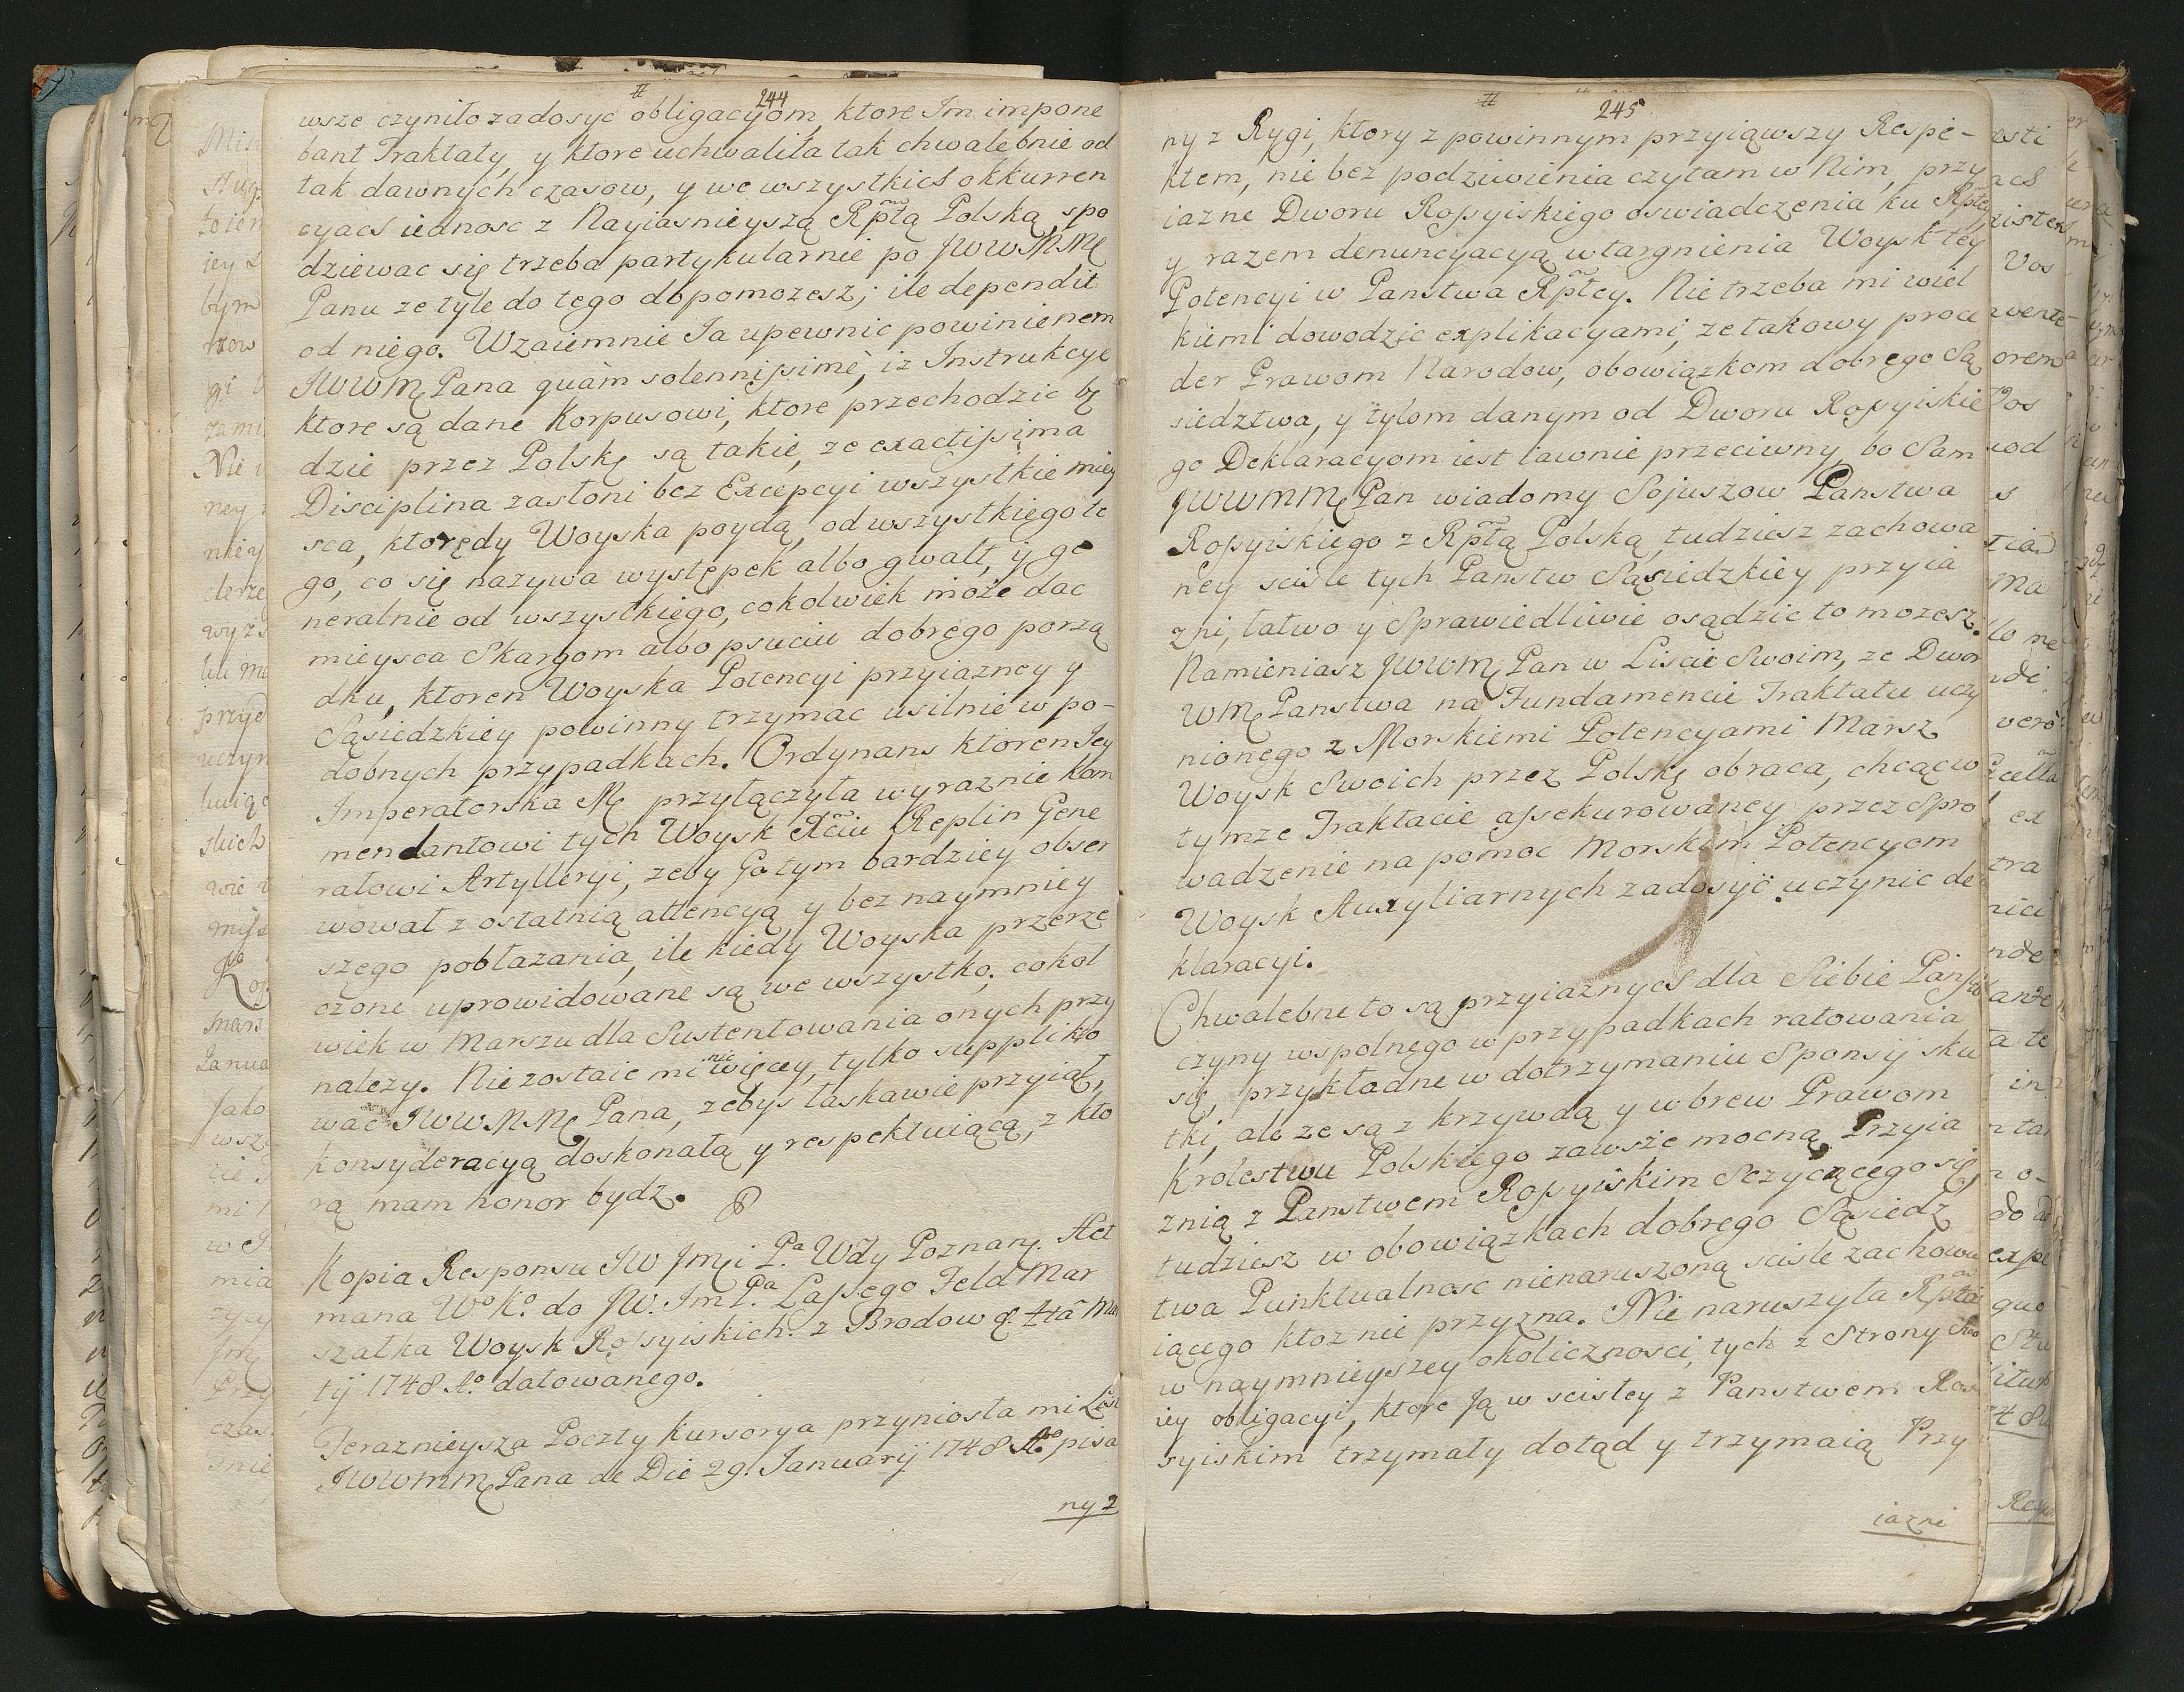 244
wsze czyniło zadosyc obligacyom, ktore Im impone
bant Traktaty, y ktore uchwaliła tak chwalebnie od
tak dawnych czasow, y we wszystkich okkurren
cyach iednosc z Nayiasnieyszą Rptą Polską, spo
dziewac się trzeba partykularnie po JWWMMę
Panu ze tyle do tego dopomozesz; ile dependit
od niego. Wzaiemnie Ia upewnic powinienem
JWWMę Pana quàm solennissimè, iz Instrukcye
ktore są dane Korpusowi, ktore przechodzic bę
dzie przez Polskę są takie, ze exactissima
Disciplina zasłoni bez Excepcyi wszystkie miey
sca, ktorędy Woyska poydą, od wszystkiego te
go, co się nazywa występek albo gwałt, y ge
neralnie od wszystkiego, cokolwiek może dac
mieysca Skargom albo psuciu dobrego porzą
dku, ktoren Woyska Potencyi przyiazney y
Sąsiedzkiey powinny trzymac usilnie w po-
dobnych przypadkach. Ordynans ktoren Jey
Imperatorska Mę przyłączyła wyraznie Kom
mendantowi tych Woysk Xciu Replin Gene
rałowi Artylleryi, zeby Go tym bardziey obser
wował z ostatnią attencyą y bez naymniey
szego pobłazania, ile kiedy Woyska przerze
czone uprowidowane są we wszystko; cokol
wiek w Marszu dla Sustentowania onych przy
nalezy. Nie zostaie mi nic więcey, tylko suppliko
wac JWWMMę Pana, zebys łaskawie przyiął,
konsyderacyą doskonałą y respektuiącą, z kto
rą mam honor bydz.
Kopia Responsu JW Jmęi Pa. Wdy Poznanj. Het
mana Wo. Ko. do JW. Jm Pa. Lassego Feld Mar
szałka Woysk Rossyiskich. z Brodow d. 4ta Mar
tij 1748 Ao. datowanego.
Terazniejsza Poczty Kursorya przyniosła mi List
JWWMMę Pana de Die 29. Januarij 1748 Ao. pisa
ny z
245
ny z Rygi, ktory z powinnym przyiąwszy Respe-
ktem, nie bez podziwienia czytam w Nim, przy
iazne Dworu Rossyiskiego oswiadczenia ku Rptey
y razem denuncyacyą wtargnienia Woysk tey
Potencyi w Panstwa Rptey. Nie trzeba mi wiel
kiemi dowodzic explikacyami, ze takowy proce
der Prawom Narodow, obowiązkom dobrego Są
siedztwa, y tylom danym od Dworu Rossyiskie
go Deklaracyom iest iawnie przeciwny, bo Sam
JWWMMę Pan wiadomy Sojuszow Panstwa
Rossyiskiego z Rptą Polską, tudziesz zachowa
ney scisle tych Panstw Sąsiedzkiey przyia
zni, łatwo y Sprawiedliwie osądzic to mozesz.
Namieniasz JWWMę Pan w Liscie Swoim, ze Dwor
WMę Panstwa na Fundamencie Traktatu uczy
nionego z Morskiemi Potencyami Marsz
Woysk Swoich przez Polskę obraca, chcąc w
tymze Traktacie assekurowaney przez Spro
wadzenie na pomoc Morskim Potencyom
Woysk Auxyliarnych zadosyć uczynic de
klaracyi.
Chwalebne to są przyiaznych dla Siebie Panstw
czyny wspolnego w przypadkach ratowania
się, przykładne w dotrzymaniu Sponsij sku
tki, ale ze są z krzywdą y wbrew Prawom
Krolestwu Polskiego zawsze mocną Przyia
znią z Panstwem Rossyiskim Sczycącego się,
tudziesz w obowiązkach dobrego Sąsiedz
twa Punktualnosc nienaruszoną scisle zachowu
iącego ktoz nie przyzna. Nie naruszyła Rpta
w naymnieyszey okolicznosci, tych z Strony Swo
iey obligacyi, ktore Ją w scisley z Panstwem Ros
syiskim trzymały dotąd y trzymaią Przy
iazni